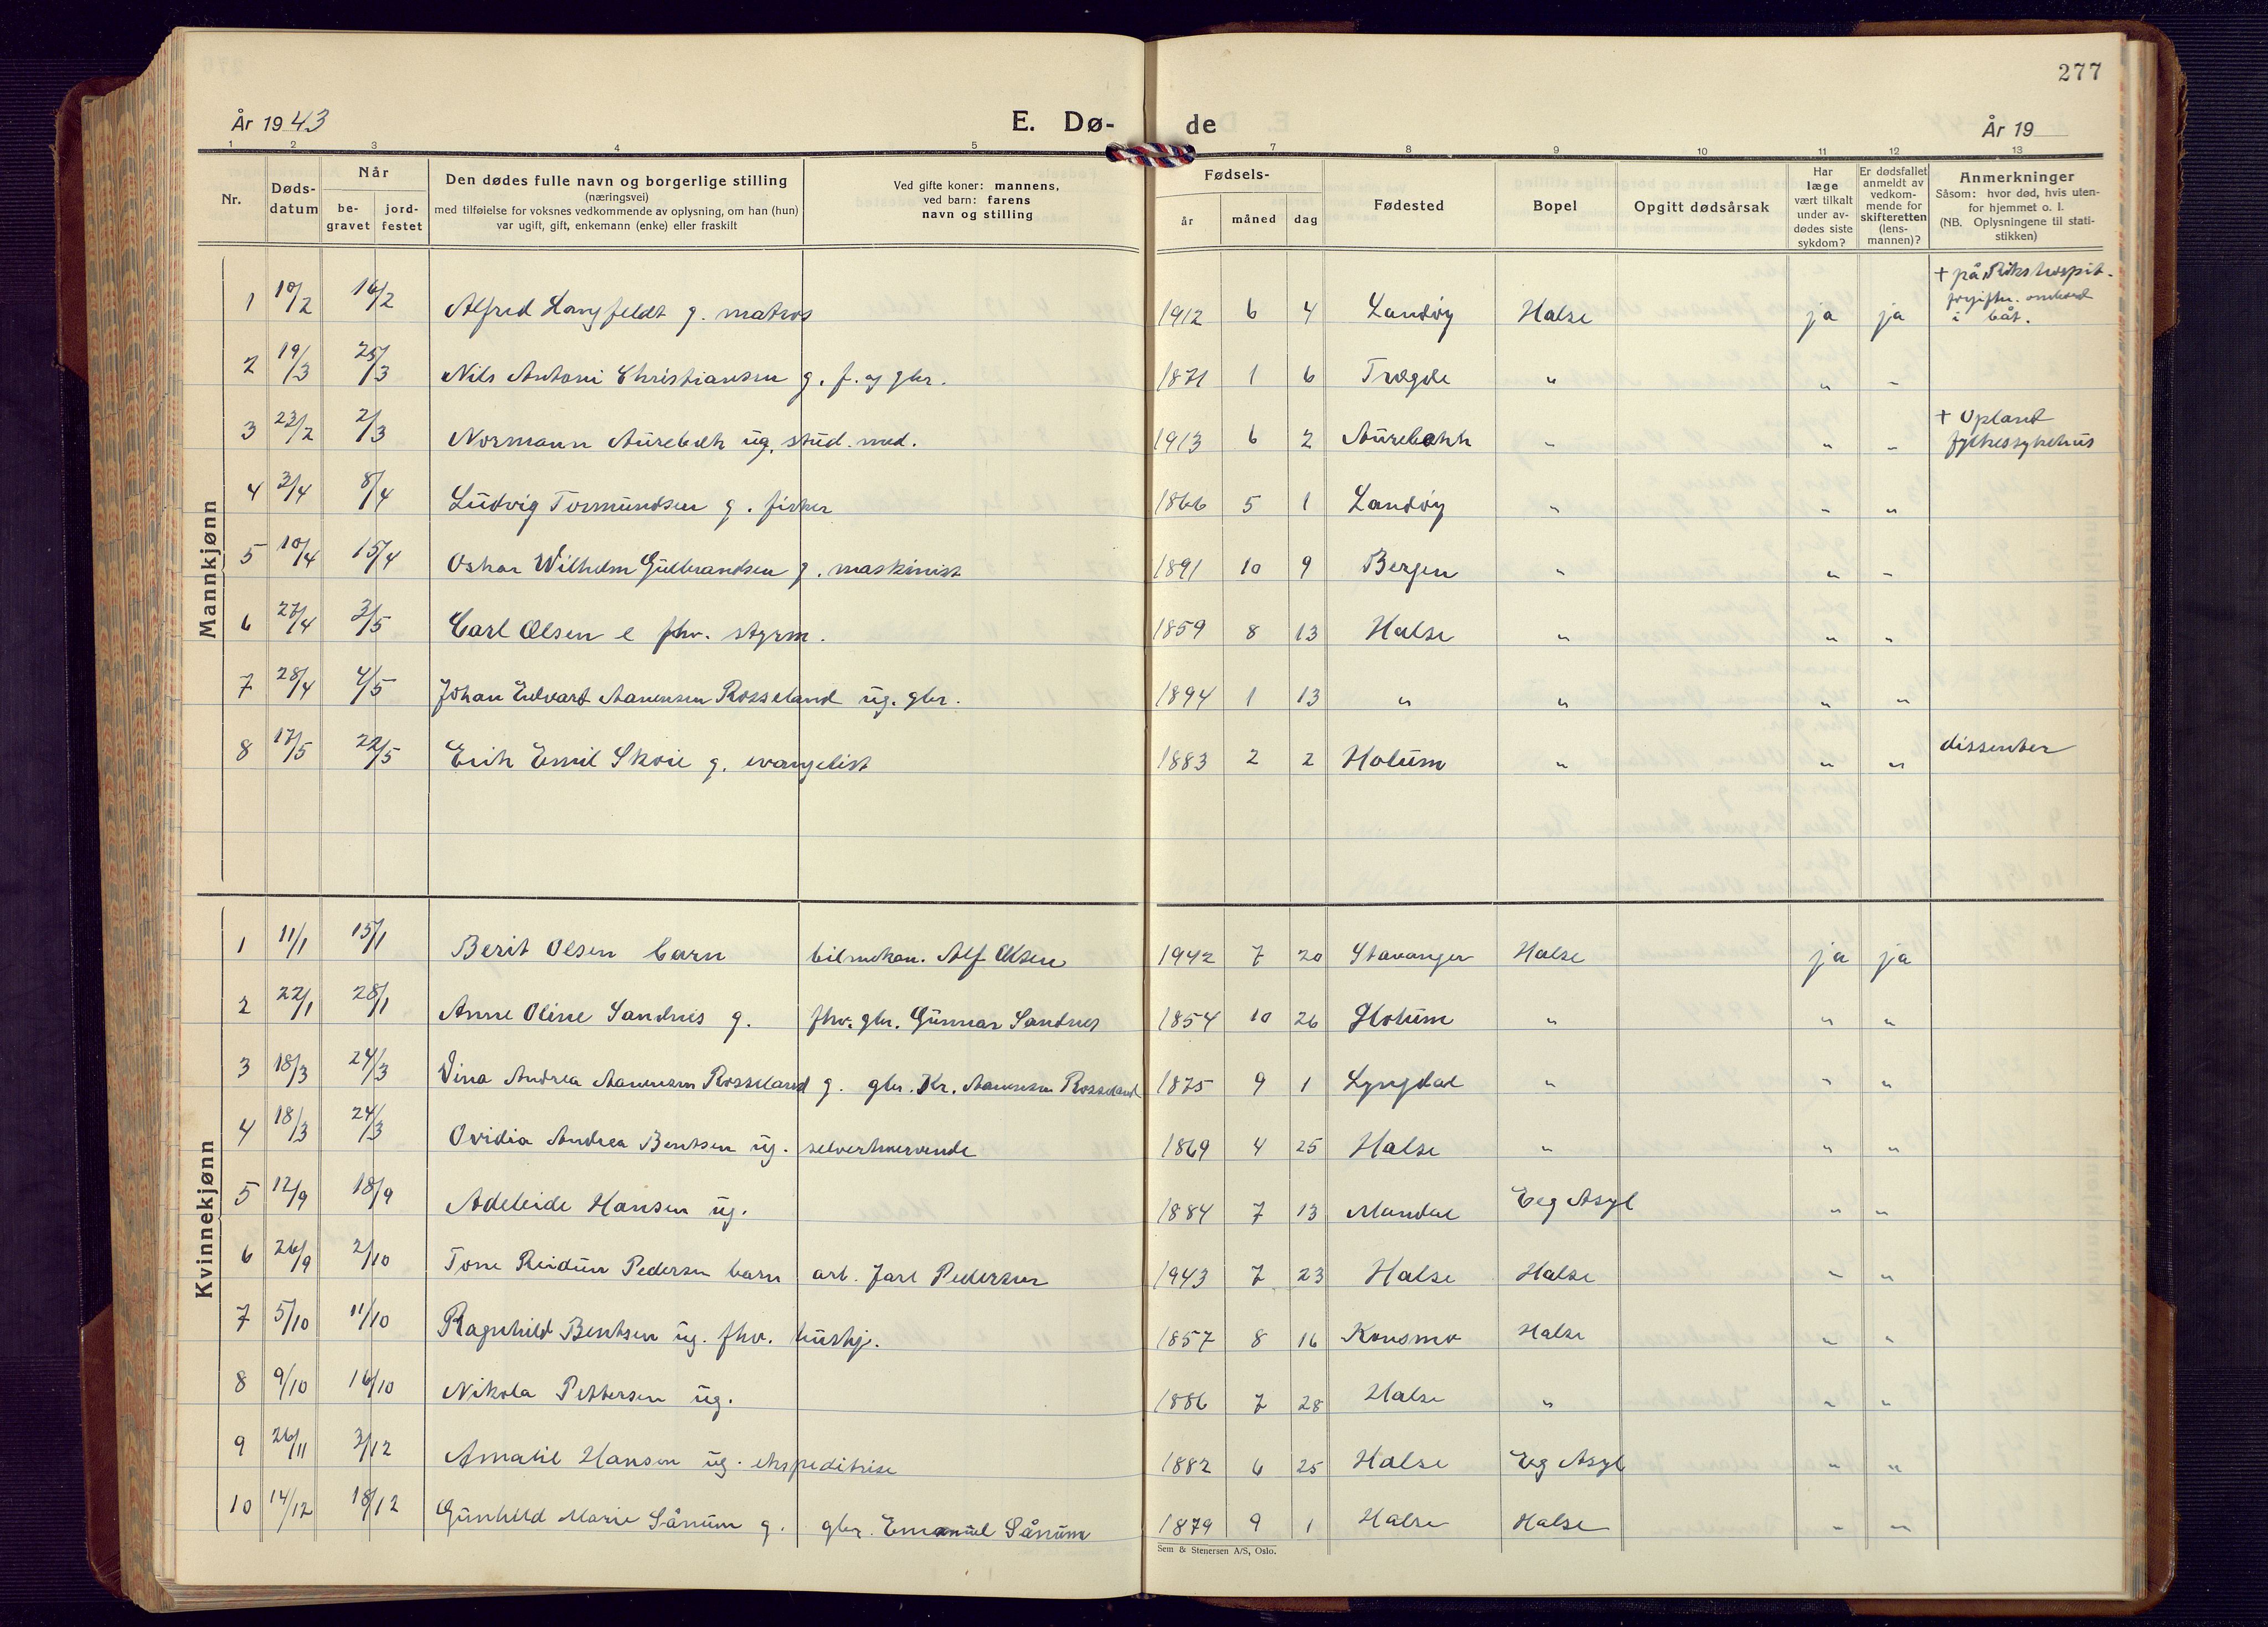 277
År 1943
E. Dø-
de
År 19
1 2 3 4 5 7 8 9 10 11 12 13
Nr.
Døds-
datum
Når
be-
gravet
jord-
festet
Den dødes fulle navn og borgerlige stilling
(næringsvei)
med tilføielse for voksnes vedkommende av oplysning, om han (hun)
var ugift, gift, enkemann (enke) eller fraskilt
Ved gifte koner: mannens,
ved barn: farens
navn og stilling
Fødsels-
år måned dag
Fødested
Bopel
Opgitt dødsårsak
Har
læge
vært tilkalt
under av-
dødes siste
sykdom?
Er dødsfallet
anmeldt av
vedkom-
mende for
skifteretten
(lens-
mannen)?
Anmerkninger
Såsom: hvor død, hvis uten-
for hjemmet o. l.
(NB. Oplysningene til stati-
stikken)
Mannkjønn
1 10/2 16/2 Alfred Langfeldt g. matros 1912 6 4 Landøy Halse ja ja + på Rikshospit.
forgiftn. ombord
i båt.
2 19/3 25/3 Nils Antoni Christiansen g. f. og gbr. 1871 1 6 Trægde " " "
3 22/2 2/3 Normann Aurebekk ug. stud. med. 1913 6 2 Aurebekk " " " + Opland
fylkessykehus
4 3/4 8/4 Ludvig Tormundsen g. fisker 1866 5 1 Landøy " " "
5 10/4 15/4 Oskar Wilhelm Gulbrandsen g. maskinist 1891 10 9 Bergen " " "
6 27/4 3/5 Carl Olsen e fhv. styrm. 1859 8 13 Halse " " "
7 28/4 4/5 Johan Edvard Aanensen Rosseland ug. gbr. 1894 1 13 " " " "
8 17/5 22/5 Erik Emil Skoie g. evangelist 1883 2 2 Holum " " " dissenter
Kvinnekjønn
1 11/1 15/1 Berit Olsen barn bilmekan. Alf Olsen 1942 7 20 Stavanger Halse ja ja
2 22/1 28/1 Anne Oline Sandnes g. fhv. gbr. Gunnar Sandnes 1854 10 26 Holum " " "
3 18/3 24/3 Dina Andrea Aanensen Rosseland g. gbr. Kr. Aanensen Rosseland 1875 9 1 Lyngdal " " "
4 18/3 24/3 Ovidia Andrea Bentsen ug. selverhvervende 1869 4 25 Halse " " "
5 12/9 18/9 Adeleide Hansen ug. 1884 7 13 Mandal Eeg Asyl " "
6 26/9 2/10 Tone Reidun Pedersen barn arb. Jarl Pedersen 1943 7 23 Halse Halse " "
7 5/10 11/10 Ragnhild Bentsen ug. fhv. hushj. 1857 8 16 Konsmo Halse " "
8 9/10 16/10 Nikola Pettersen ug. 1886 7 28 Halse " " "
9 26/11 3/12 Amalie Hansen ug. ekspeditrise 1882 6 25 Halse Eeg Asyl " "
10 14/12 18/12 Gunhild Marie Sånum g. gbr. Emanuel Sånum 1879 9 1 Halse Halse " "
Sem & Stenersen A/S, Oslo.